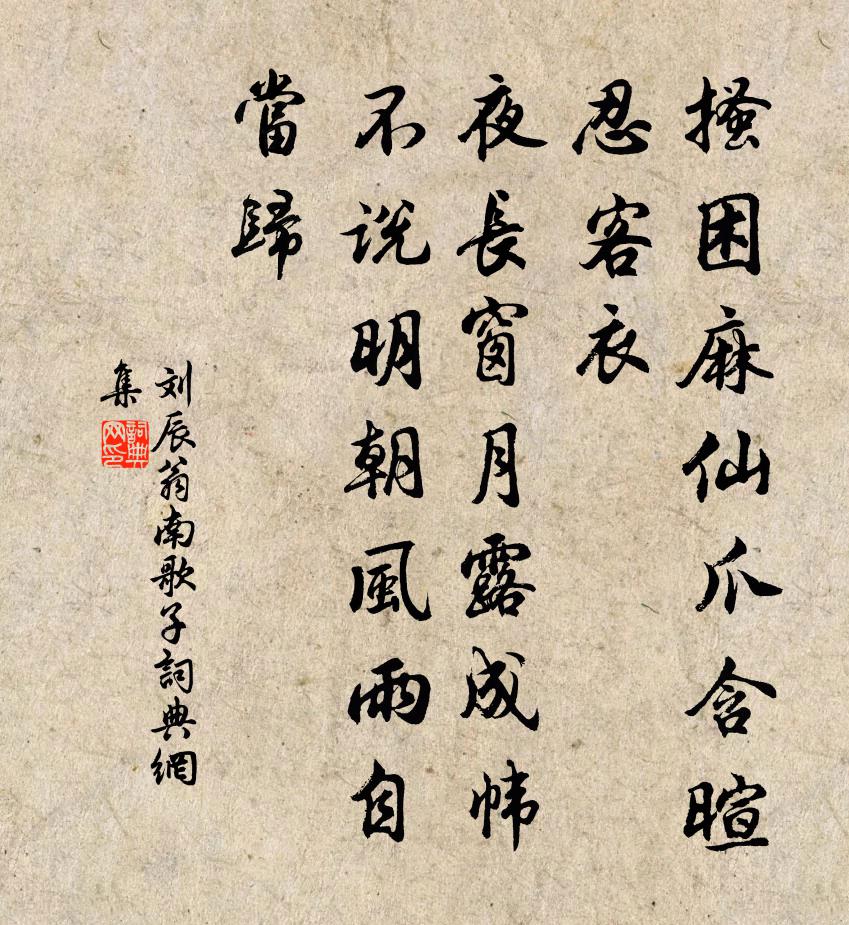 搔困麻仙爪含暄
忍客衣
夜長窗月露成幃
不说明朝風雨自
當歸
刘辰翁南歌子詞典網
集
詞典
网印